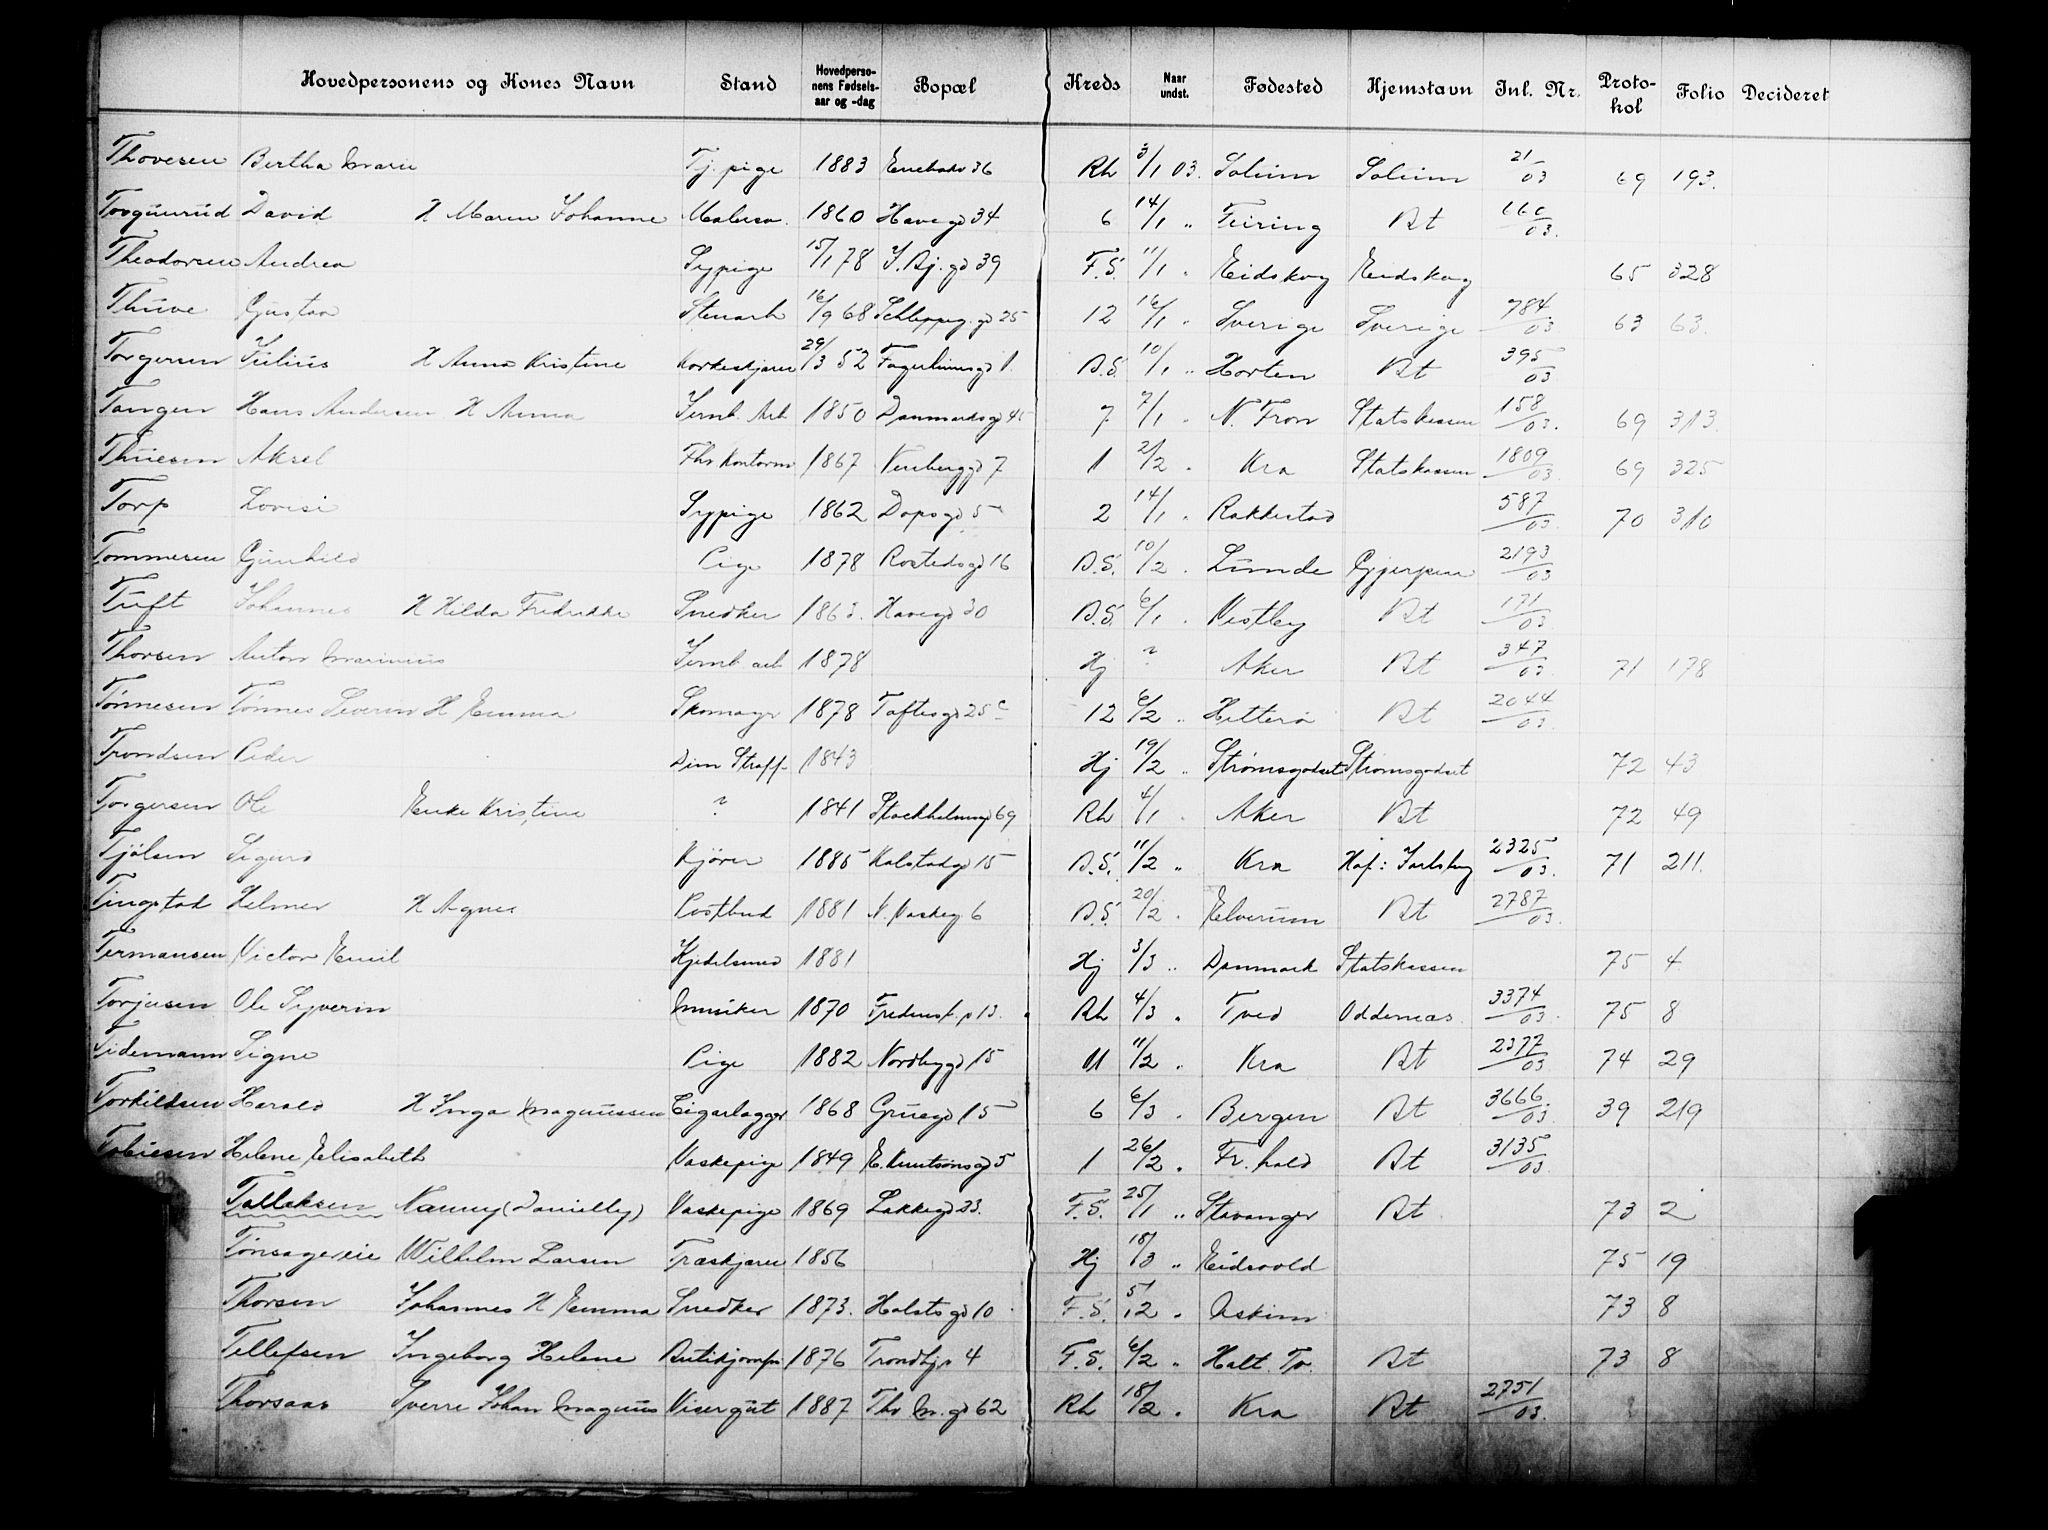 Hovedpersonens og Kones Navn Stand Hovedpersonens Fødselsaar og -dag Bopæl Kreds Naar undst. Fødested Hjemstavn Inl. Nr. Protokol Folio Decideret
Thovesen Bertha Marie Tj. pige 1883 Enebakv 36 Rh 3/1 03. Soleim Soleim 21/03 69 193.
David H Maren Johanne 1860 Havegd 34 6 14/1 " Feiring Bt /03.
Theodorsen Andrea Sypige 15/1 78 39 F.S. 11/1 " Eidskog Eidskog 65 328
Thuve Gustav Stenarb 16/9 68 Schleppeg.gd 25 12 16/1 " Sverige Sverige 784/03 63 63.
Torgersen Julius H Anna Kristine Korkeskjærer 29/3 52 Fagerheimsgd 1. B.S. 10/1 " Horten Bt 395/03
Tangen Hans Andersen H Anna Jernb. Arb 1850 Danmarksgd 45 7 7/1 " N. Fron Statskassen 158/03. 69 313
Thuesen Aksel Fhv Kontorm 1867 7 1 2/2 " Kra Statskassen 1809/03 69 325
Torp Lovise Sypige 1862 Dopsgd 5 2 14/1 " Rakkestad 587/03 70 310
Tommesen Gunhild Pige 1878 Rostedsgd 16 B.S. 10/2 " Lunde Gjerpen 2193/03
Tuft Johannes H Hilda Fredrikke Snedker 1863. Havegd 30 B.S. 6/1 " Vestby Bt 171/03
Thorsen Anton Marinius Jernb arb 1878 Hj ? Aker Bt 347/03 71 178
Tønnesen Tønnes Severin H Emma Skomager 1878 Toftesgd 25c 12 6/2 " Hitterø Bt 2044/03
Trondsen Peder Dim Straff. 1843 Hj 19/2 " Strømsgodset Strømsgodset 72 43
Torgersen Ole Enke Kristine ? 1841 Stockholmsgd 69 Rh 4/1 " Aker Bt 72 49
Tjølsen Sigurd Kjører 1885 Kalstadgd 15 B.S. 11/2 " Kra Hof: Jarlsberg 2325/03. 71 211.
Tingstad Helmer H Agnes Postbud 1881 N. Vaskeg. 6 B.S. 20/2 " Elverum Bt 2787/03.
Termansen Victor Emil Kjedelsmed 1881 Hj 3/3 " Danmark Statskassen 75 4
Torjusen Ole Syverin Musiker 1870 Fredensb.v 13. Rh 4/3 " Tved Oddernæs. 3374/03. 75 8
Tidemann Signe Pige 1882 Nordbygd 15 11 11/2 " Kra Bt 2377/03 74 29
Torkildsen Harald H Inga Magnussen Cigarlagger 1868 Gruegd 15 6 6/3 " Bergen Bt 3666/03. 39 219
Tobiesen Helene Elisabeth Vaskepige 1849 E. Knutsonsgd 5 1 26/2 " Fr.hald Bt 3135/03
Tolleksen Nanny (Danielby) Vaskepige 1869 Lakkegd 23. F.S. 25/1 " Stavanger Bt 73 2
Tønsagereie Wilhelm Larsen Træskjærer 1856 Hj 18/3 " Eidsvold 75 19
Thorsen Johannes H Emma Snedker 1873. Holstsgd 10 F.S. 5/12 " Askim 73 8
Tellefsen Ingeborg Helene Butikjomfr 1876 Trondhjv 4 F.S. 6/2 " Holt. Tv. Bt 73 8
Thorsaas Sverre Johan Magnus Visergut 1887 Thv M.gd 62 Rh 18/2 " Kra Bt 2751/03.